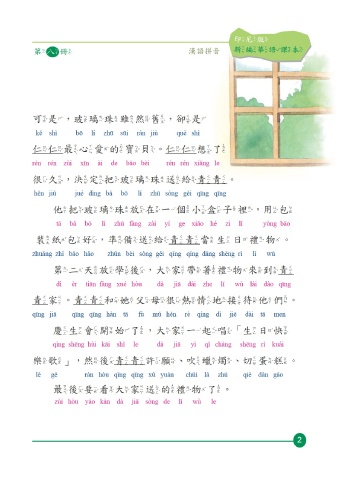 印尼版
第八冊
漢語拼音
新編華語課本
可是，玻璃珠雖然舊，卻是
kě shì bō lí zhū suī rán jiù què shì
仁仁最心愛的寶貝。仁仁想了
rén rén zuì xīn ài de bǎo bèi rén rén xiǎng le
很久，決定把玻璃珠送給青青。
hěn jiǔ jué dìng bǎ bō lí zhū sòng gěi qīng qīng
他把玻璃珠放在一個小盒子裡，用包
tā bǎ bō lí zhū fàng zài yí ge xiǎo hé zi lǐ yòng bāo
裝紙包好，準備送給青青當生日禮物。
zhuāng zhǐ bāo hǎo zhǔn bèi sòng gěi qīng qīng dāng shēng rì lǐ wù
第二天放學後，大家帶著禮物來到青
dì èr tiān fàng xué hòu dà jiā dài zhe lǐ wù lái dào qīng
青家。青青和她父母很熱情地接待他們。
qīng jiā qīng qīng hàn tā fù mǔ hěn rè qíng dì jiē dài tā men
慶生會開始了，大家一起唱「生日快
qìng shēng huì kāi shǐ le dà jiā yì qǐ chàng shēng rì kuài
樂歌」，然後青青許願、吹蠟燭、切蛋糕。
lè gē rán hòu qīng qīng xǔ yuàn chuī là zhú qiē dàn gāo
最後要看大家送的禮物了。
zuì hòu yào kàn dà jiā sòng de lǐ wù le
2